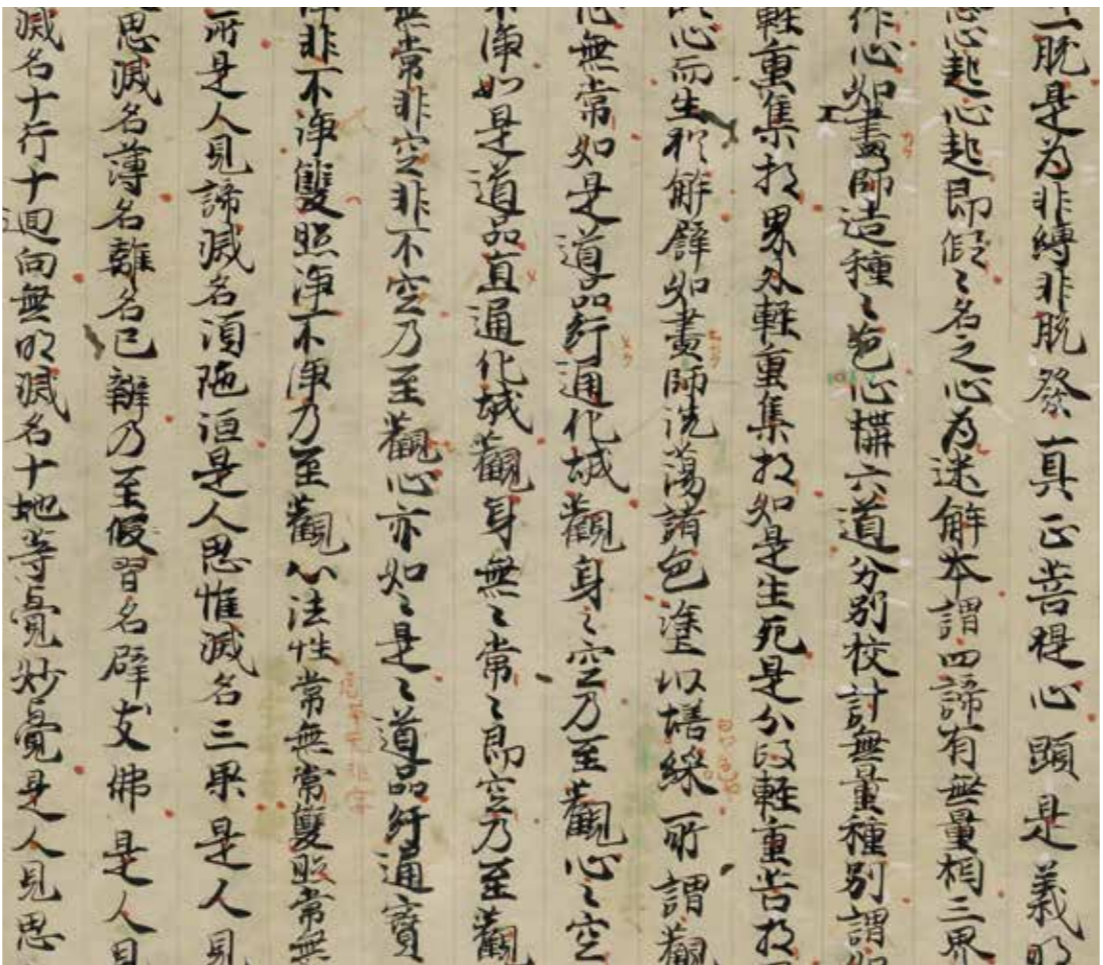 一脫是為非縛非脫發真正菩提心顕是義明
惡心起心起即假々名之心為迷解本謂四諦有無量相三界
作心如畫師造種々色心構六道分別校計無量種別謂如
軽重集招界外軽重集招如是生死是分段軽重苦招
心而生於解辟如畫師洗蕩諸色塗以墡綵所謂觀
心無常如是道品紆通化城觀身々空乃至觀心々空
不淨如是道品直通化城觀身無々常々即空乃至觀
無常非空非不空乃至觀心亦如々是々道品紆通寶
淨非不淨雙照淨不淨乃至觀心法性常無常雙照常無
所是人見諦滅名湏陁洹是人思惟滅名三果是人見
思滅名薄名離名已辦乃至假習名辟支佛是人見
滅名十行十迴向無明滅名十地等覺妙覺是人見思